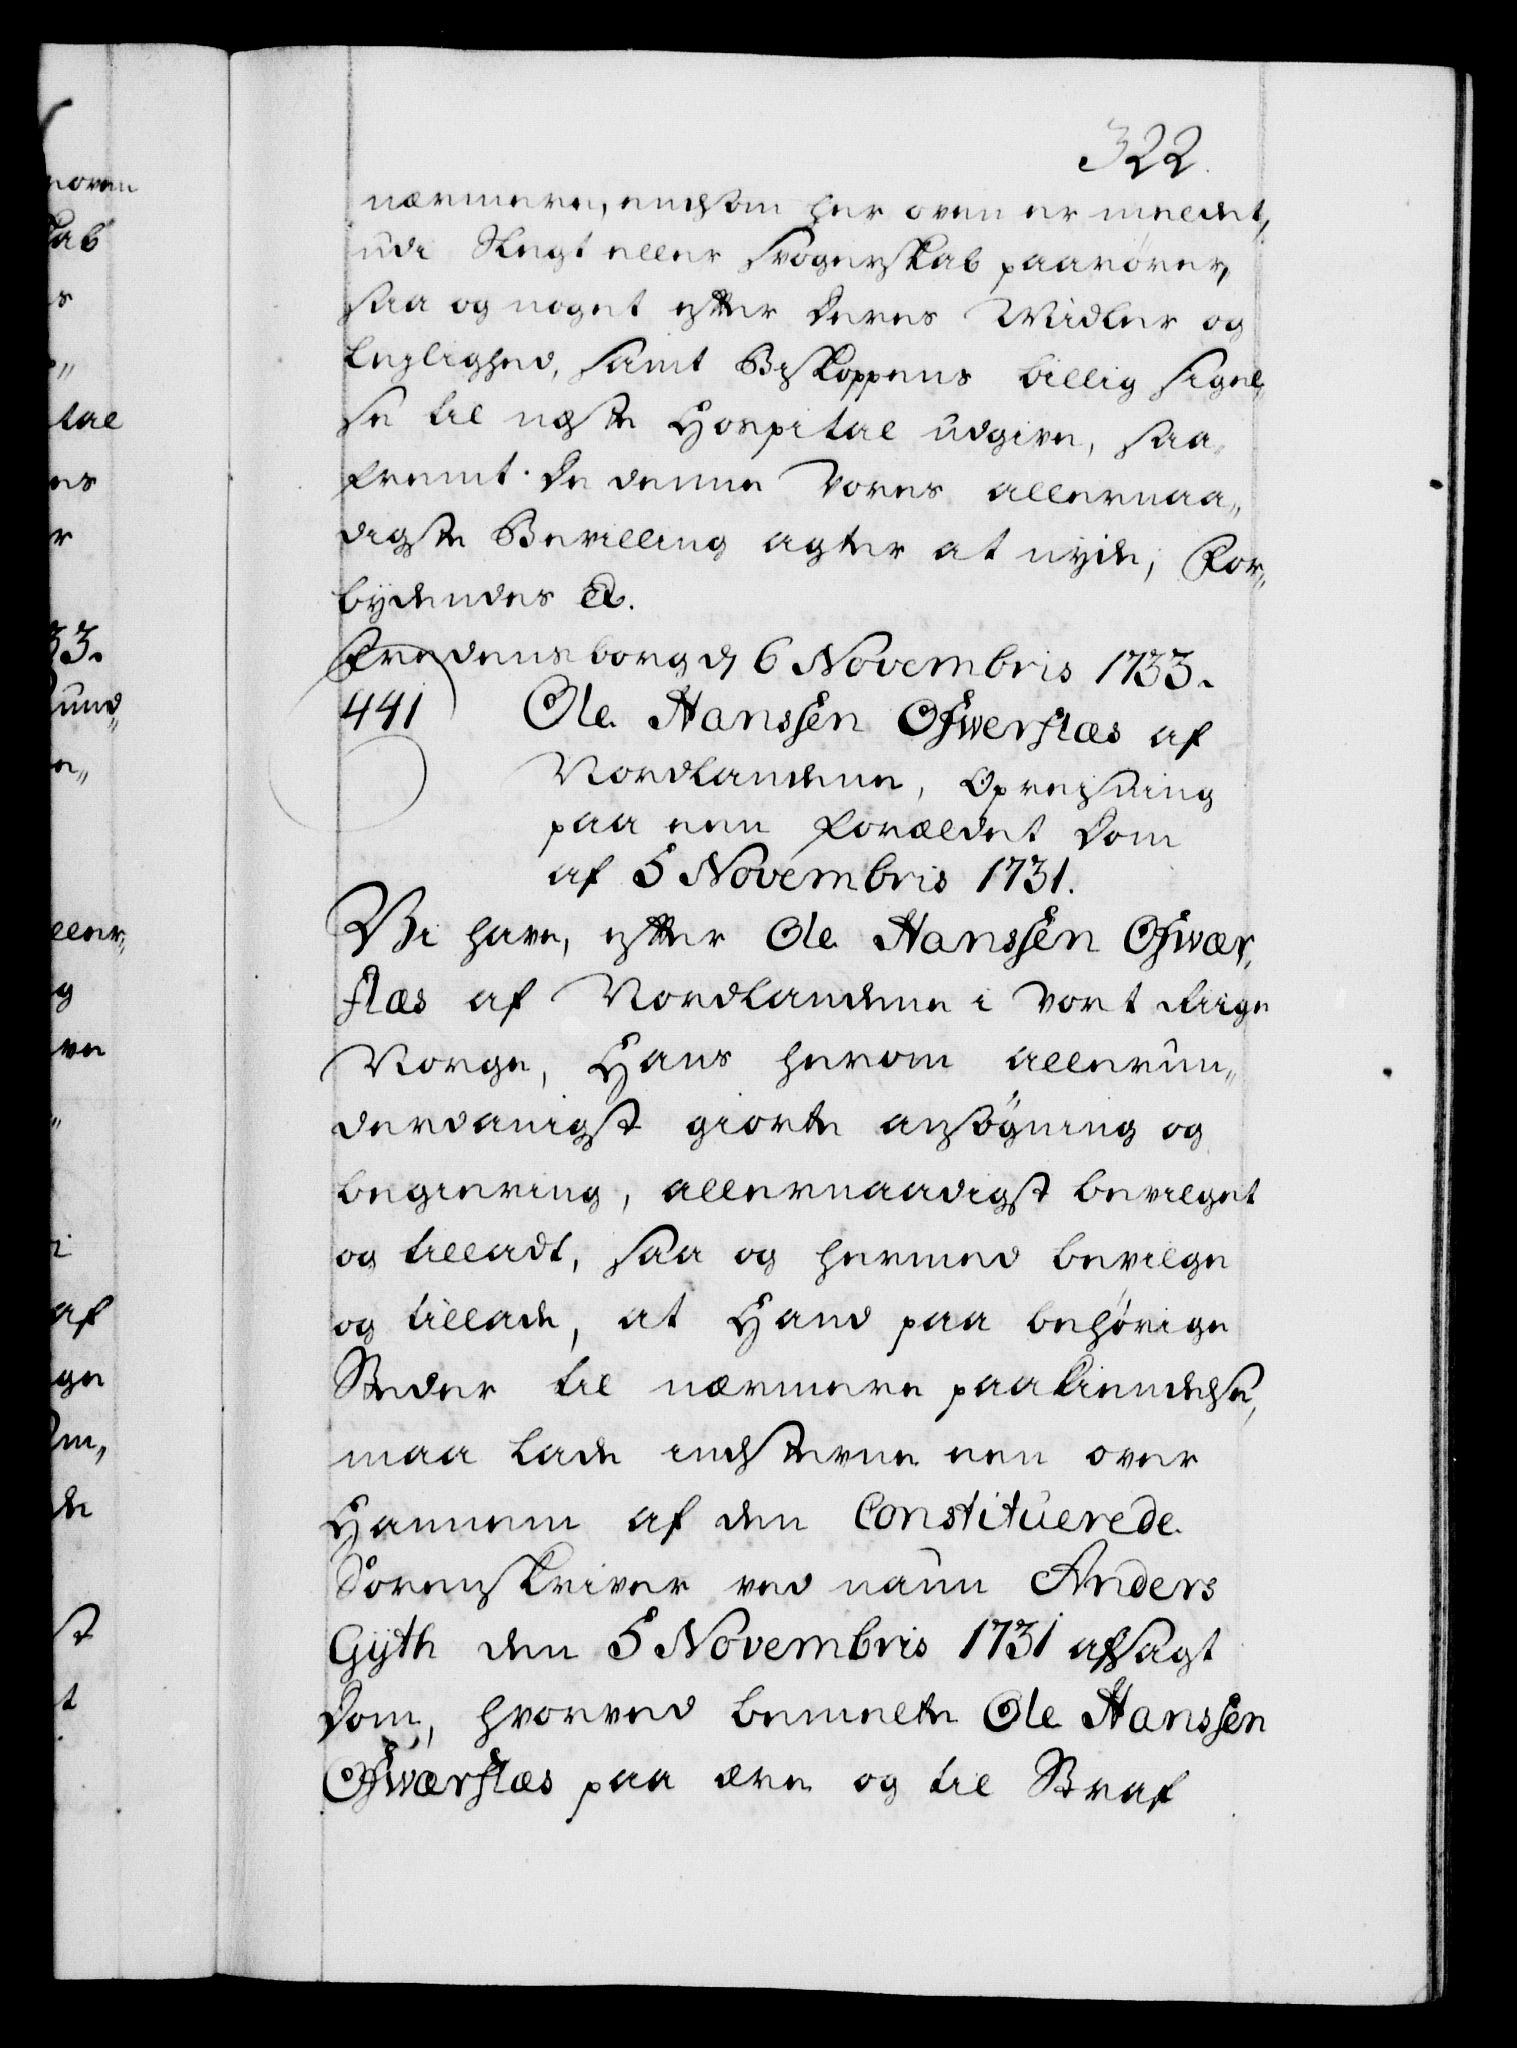 322.
nærmere, endsom her oven er meldet,
udi Slegt eller Svogerskab paarører,
saa og noget efter deres Midler og
lejlighed, samt Biskoppens billig sigel„
se til neste Hospital udgive, saa„
fremt de denne Vores allernaa„
digste Bevilling agter at nyde, For„
bydendes &.
Fredensborg d 6 Novembris 1733.
441
Ole Hanssen Ofwerflæs af
Nordlandene, Opreisning
paa een forældet Dom
af 5 Novembris 1731.
Vi have, efter Ole Hanssen Ofwær„
flæs af Nordlandene i Vort Riige
Norge, Hans herom allerun„
derdanigst giorte ansøgning og
begiering, allernaadigst bevilget
og tilladt, saa og hermed bevilge
og tillade, at Hand paa behørige
Steder til nærmere paakiendelse,
maa lade indstevne een over
Hannem af den Constituerede
Sorenskriver ved naun Anders
Gyth den 5 Novembris 1731 afsagt
Dom, hvorved bemelte Ole Hanssen
Ofwærflæs paa ære og til Straf